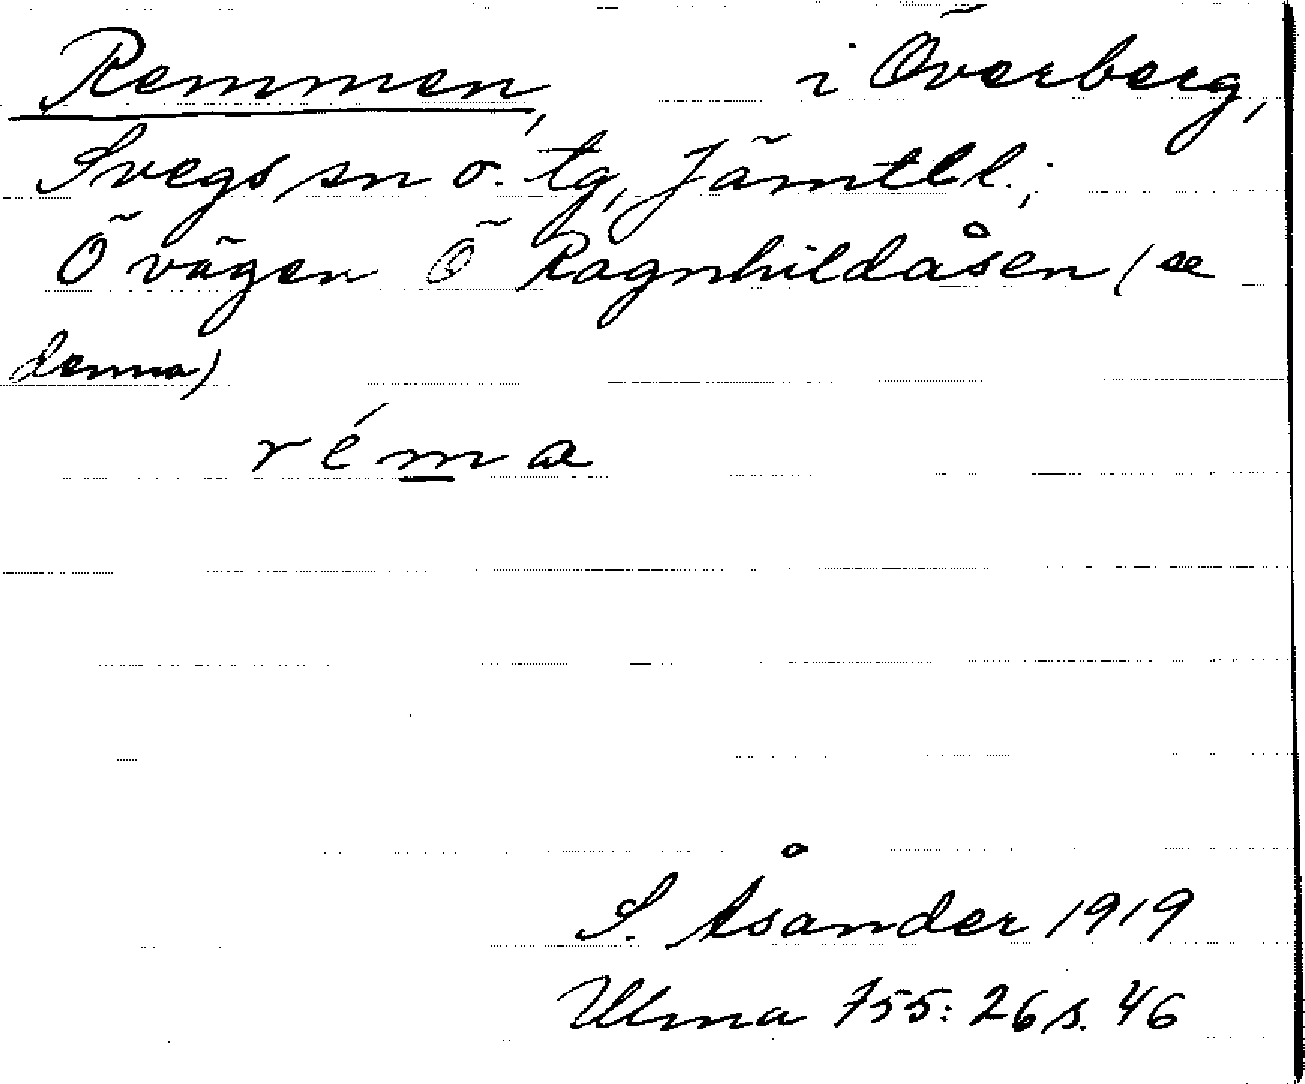 Remmen, i Överberg,
Svegs sn o. tg, Jämtl l.;
Ö vägen Ö Ragnhildåsen (se
denna)
réma
S. Åsander 1919
Ulma 755:26 s. 46